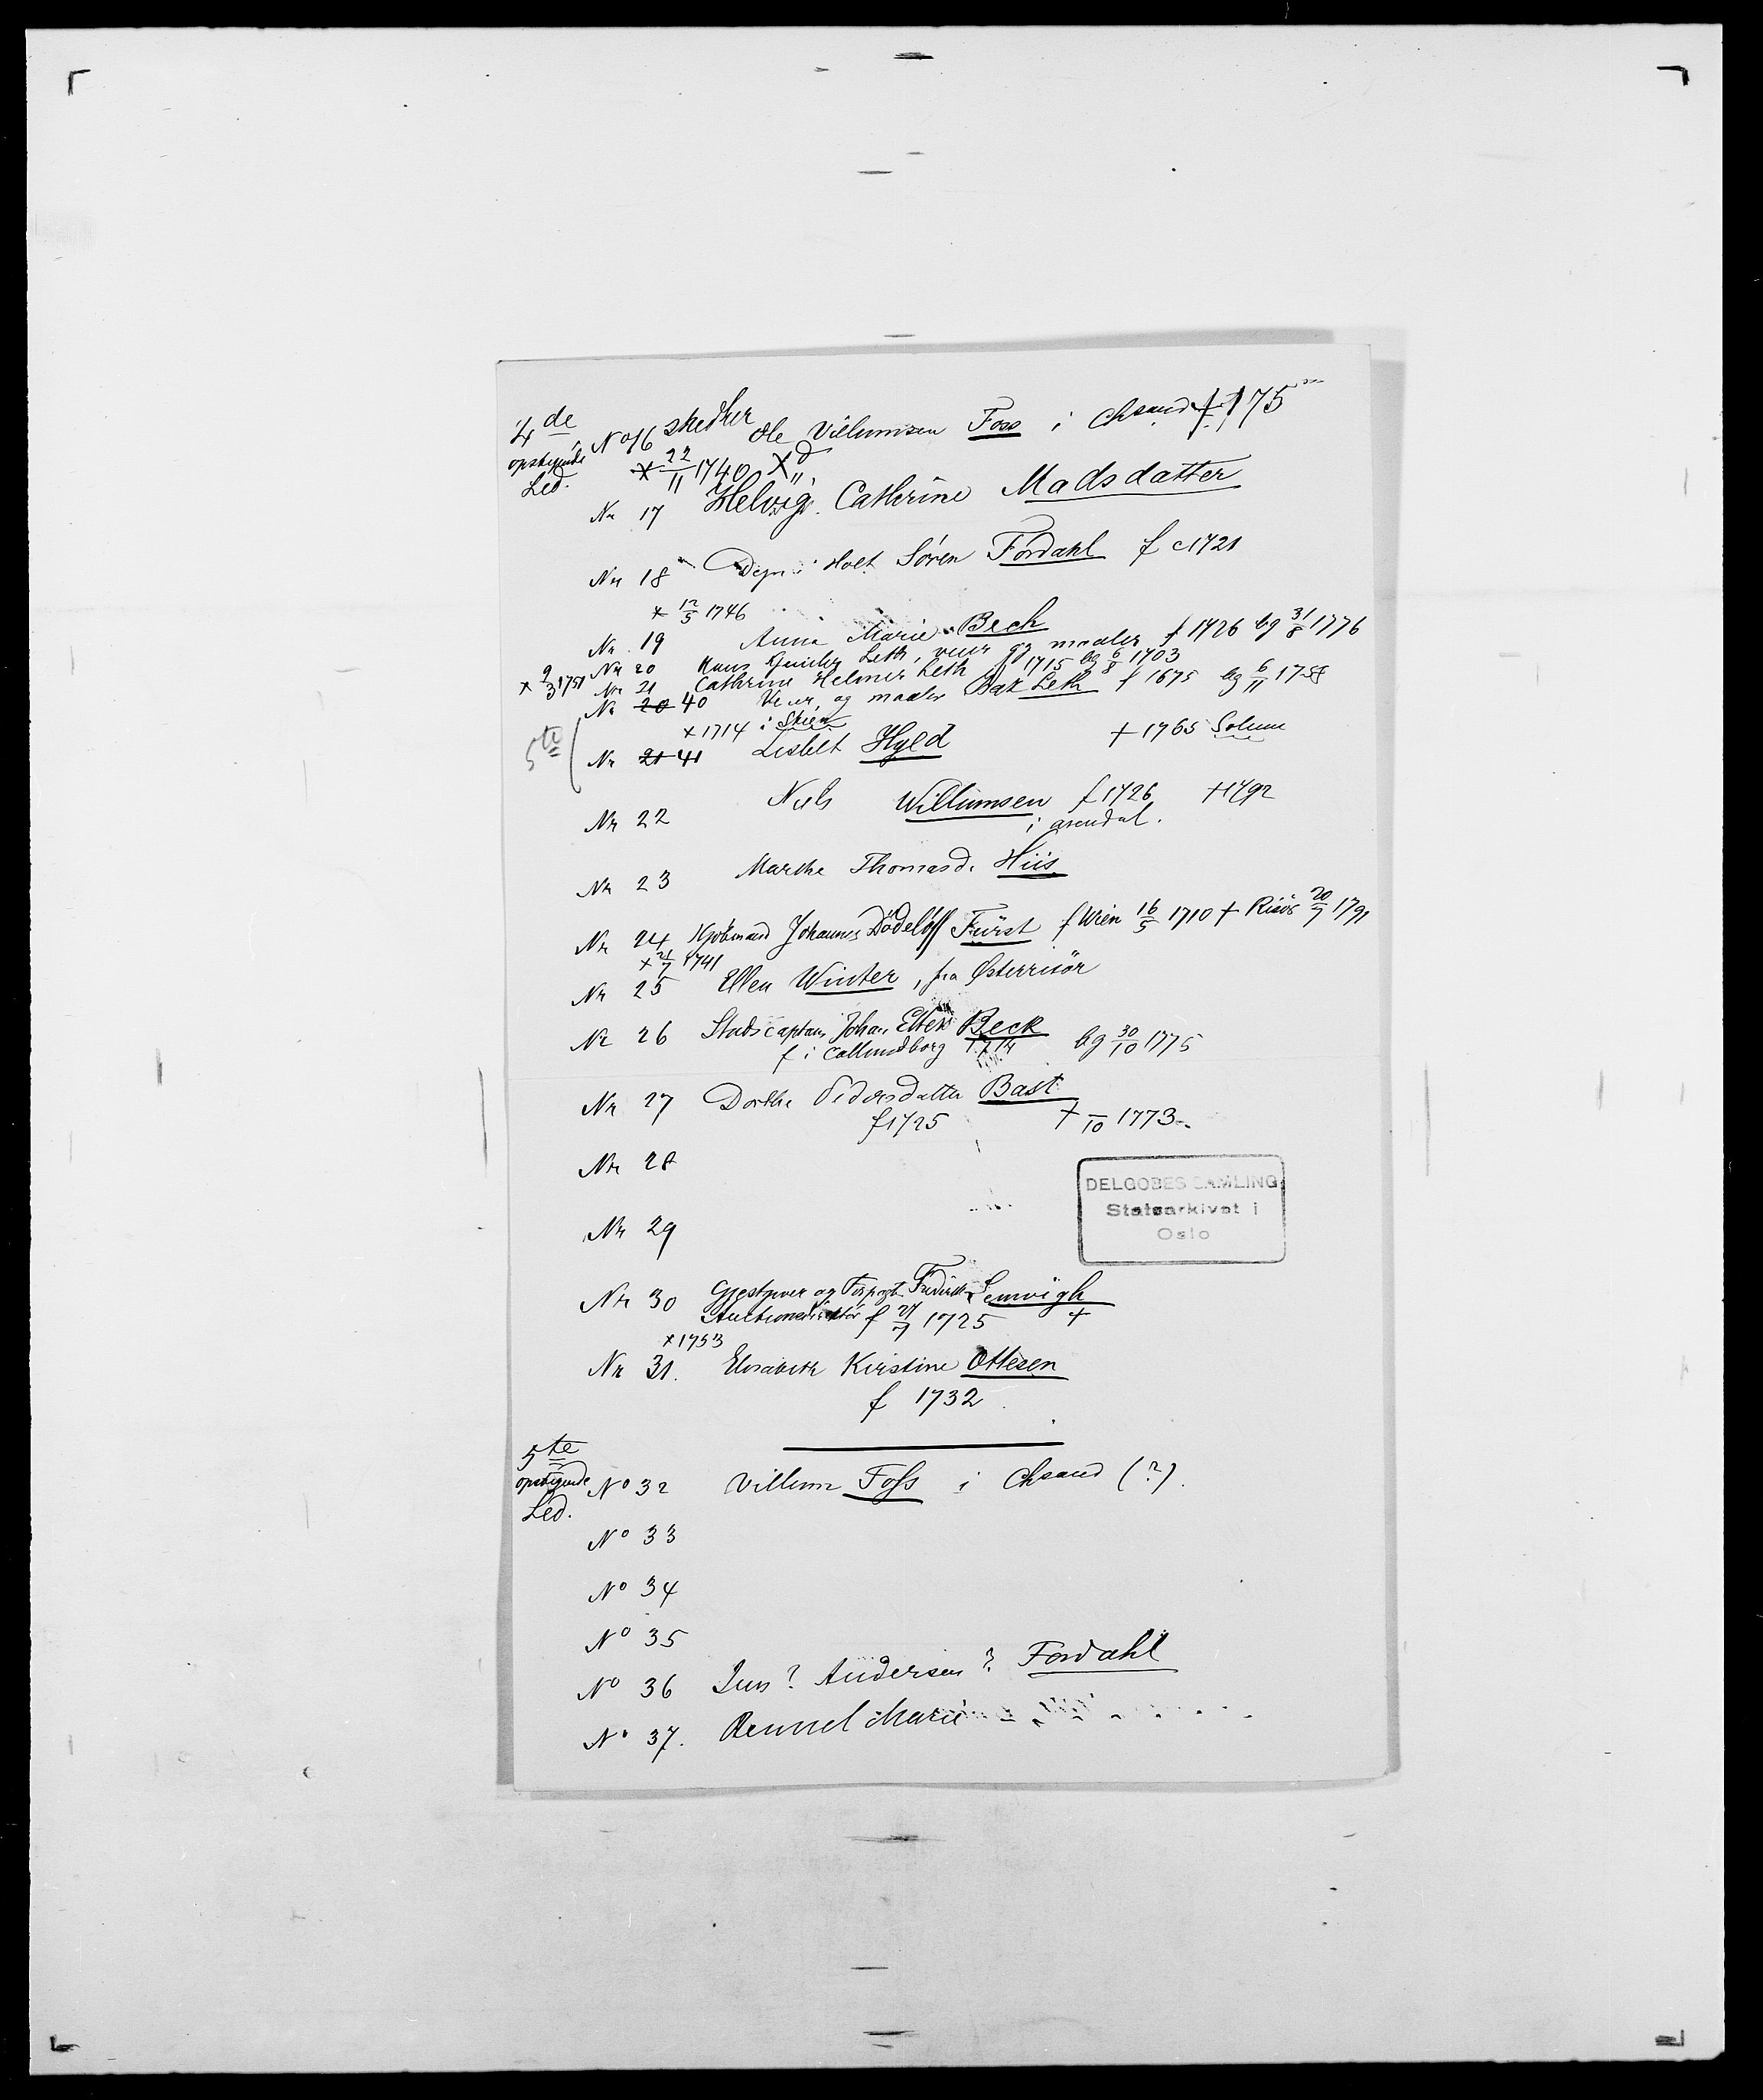 4de opstigende Led.
No 16 Ole Villumsen Foss i Chsand † 175
× 22/11 1740
Nr 17 Helvig Cathrine Madsdatter
Nr 18 Degn i Holt Sören Fordahl f c 1721
× 12/5 1746
Nr 19 Anna Marie Beck f 1726 bg 31/8 1776
× 9/3 1751 Nr 20 Hans Leth, veier og maaler
Nr 21 Cathrine Helmer Leth f 1715 bg 6/8 1703
Nr 20 40 Veier og maaler Leth f 1675 bg 6/11 1758
× 1714 i Skien
5te Nr 21 41 Lisbet Hyld † 1765 Solum
Nr 22 Niels Willumsen f 1726 † 1792
i Arendal.
Nr 23 Marthe Thomasd. Hiis
Nr 24 Kjöbmand Johannes Dödeloff Fürst f Wien 16/5 1710 † Risör 20/7 1791
× 21/7 1741
Nr 25 Ellen Winter, fra Österrisör
Nr 26 Stadscaptain Johan Beck
f i Callundborg 1714 bg 30/10 1775
Nr 27 Dorthe Pedersdatter Bast
f 1725 † /10 1773
Nr 28
DELGOBES SAMLING
Statsarkivet i
Oslo
Nr 29
Nr 30 Gjestgiver og Frederik Lemvigh
Auctionsdirektör f 27/7 1725 †
× 1753
Nr 31. Elisabeth Kirstine Ottesen
f 1732
5te opstigende Led.
No 32 Villum Foss i Chsand (?).
No 33
No 34
No 35
No 36 Jens? Andersen? Fordahl
No 37. Marie